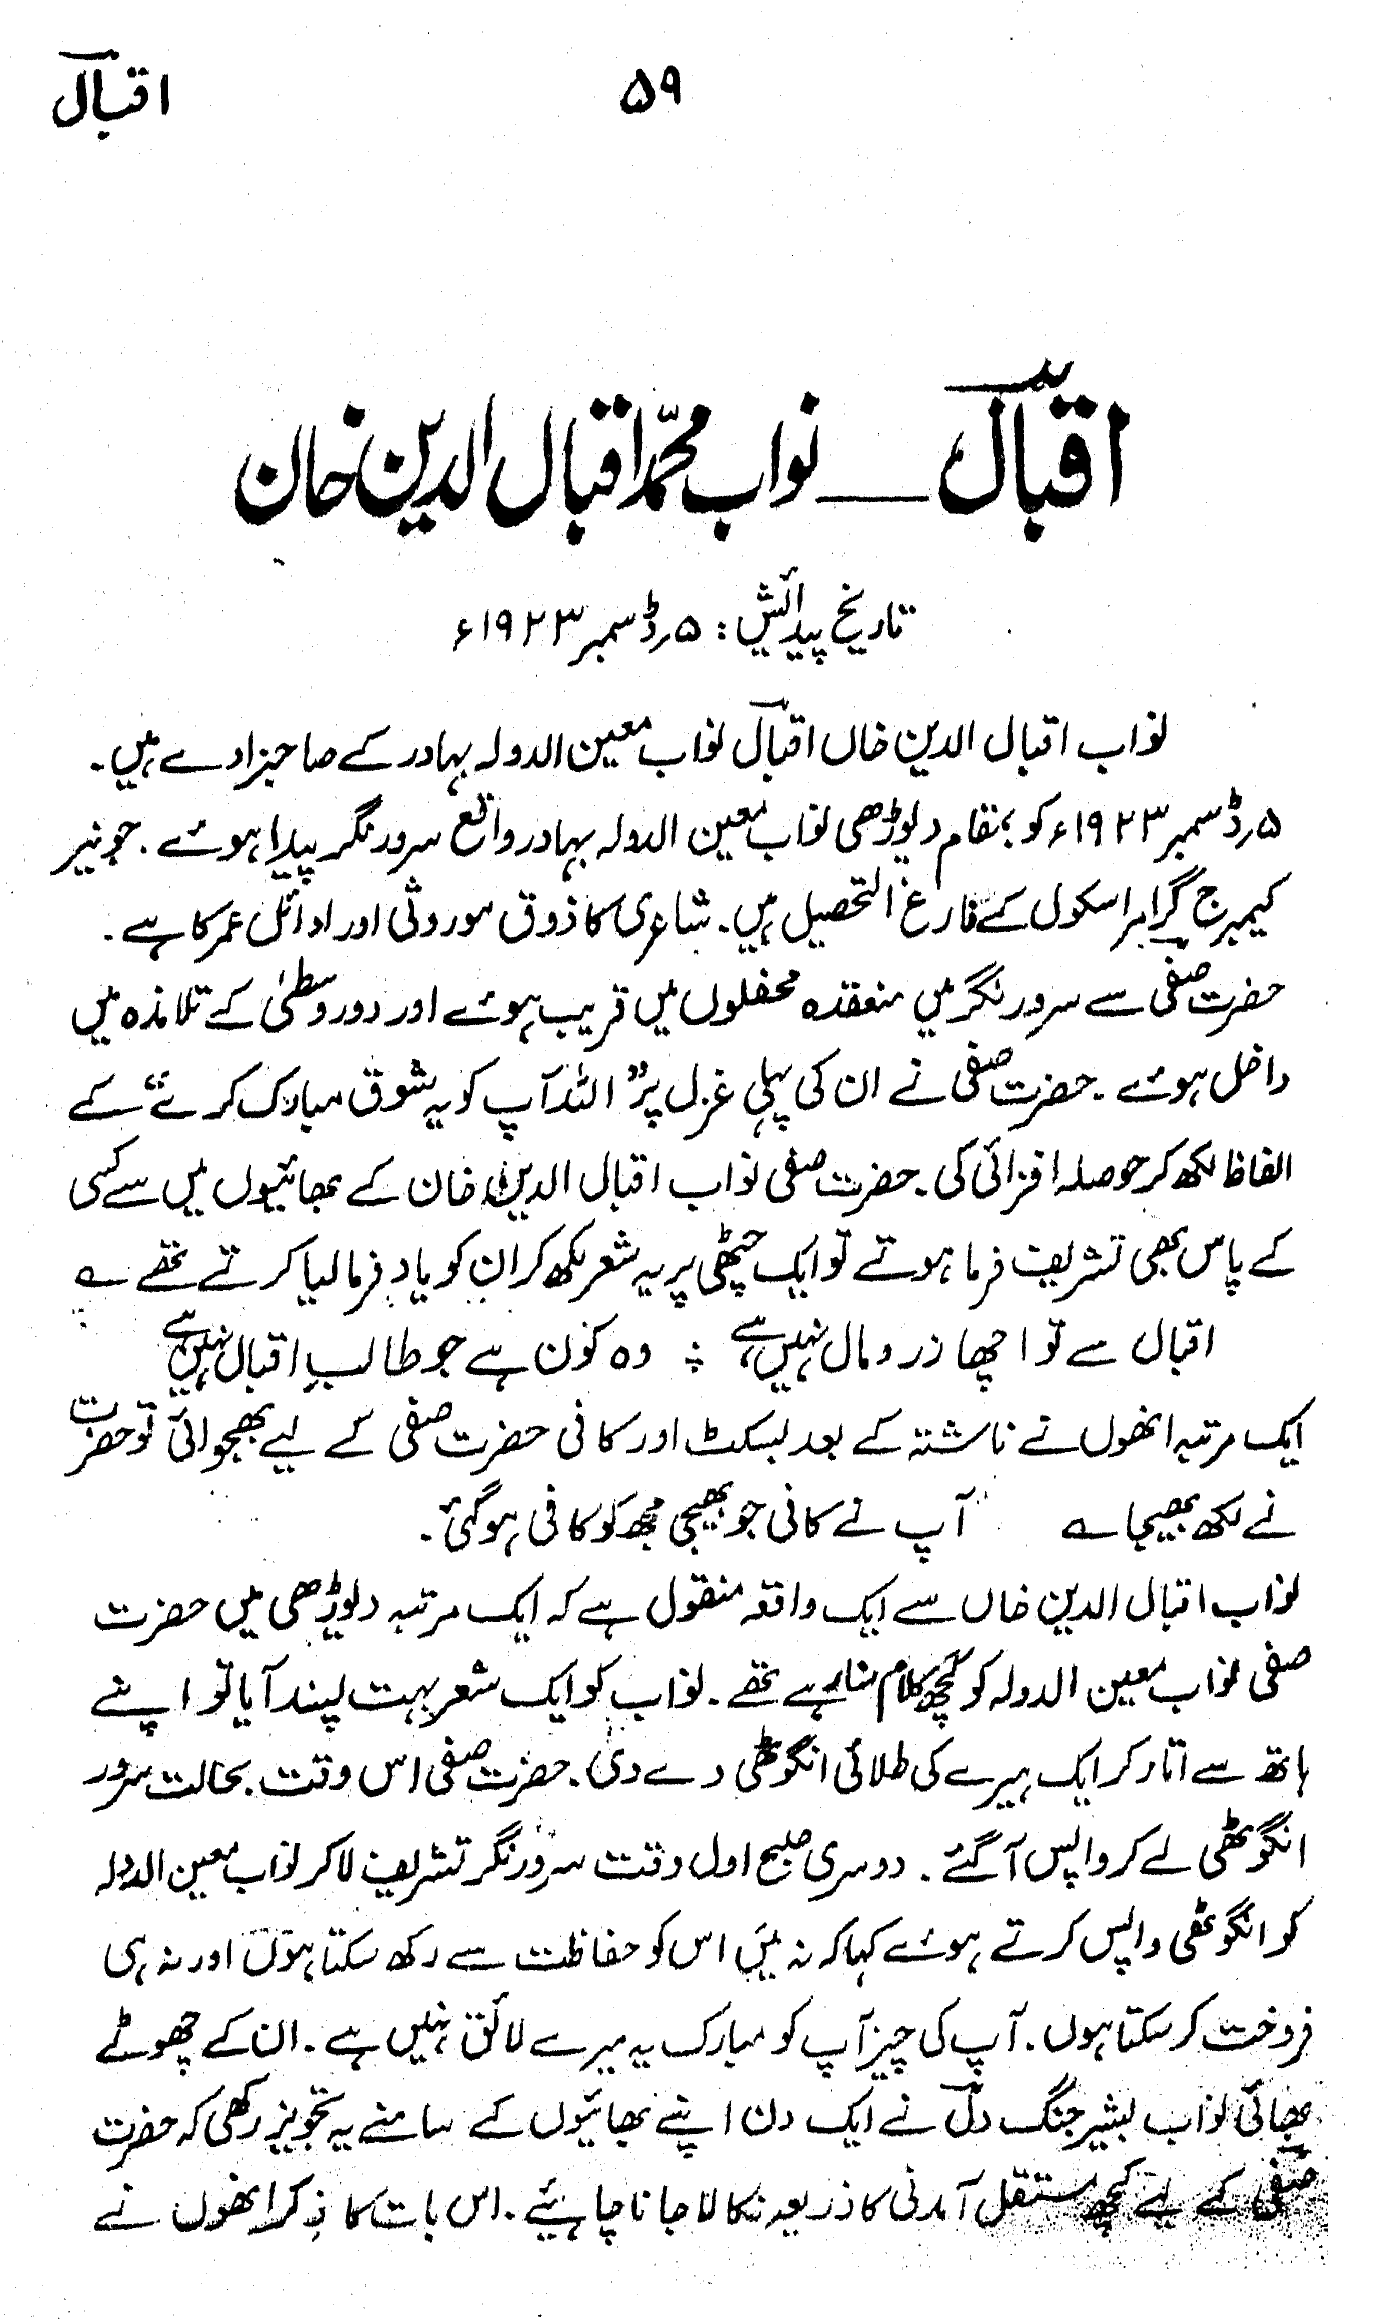 ۵۹
اقبالؔ
اقبالؔ — نواب محمّد اقبال الدین خان
تاریخ پیدائش : ۵؍ڈسمبر ۱۹۲۳ء
نواب اقبال الدین خاں اقبالؔ نواب معین الدولہ بہادر کے صاحبزادے ہیں۔
۵؍ڈسمبر ۱۹۲۳ء کو بمقام دیوڑھی نواب معین الدولہ بہادر واقع سرورنگر پیدا ہوئے۔ جونیر
کیمبرج گرامر اسکول کے فارغ التحصیل ہیں۔ شاعری کا ذوق موروثی اور اوائل عمر کا ہے۔
حضرت صفیؔ سے سرورنگر میں منعقدہ محفلوں میں قریب ہوئے اور دور وسطیٰ کے تلامذہ میں
داخل ہوئے۔ حضرت صفی نے ان کی پہلی غزل پر "اللہ آپ کو یہ شوق مبارک کرے" کے
الفاظ لکھ کر حوصلہ افزائی کی۔ حضرت صفی نواب اقبال الدین خان کے بھائیوں میں سے کسی
کے پاس بھی تشریف فرما ہوتے تو ایک چٹھی پر یہ شعر لکھ کر ان کو یاد فرمالیا کرتے تھے ؎
اقبال سے تو اچھا زر و مال نہیں ہے ؛ وہ کون ہے جو طالبِ اقبال نہیں ہے
ایک مرتبہ انھوں نے ناشتہ کے بعد بسکٹ اور کافی حضرت صفی کے لیے بھجوائی تو حضرت
نے لکھ بھیجا ؎ آپ نے کافی جو بھیجی مجھ کو کافی ہو گئی۔
نواب اقبال الدین خاں سے ایک واقعہ منقول ہے کہ ایک مرتبہ دیوڑھی میں حضرت
صفی نواب معین الدولہ کو کچھ کلام سنا رہے تھے۔ نواب کو ایک شعر بہت پسند آیا تو اپنے
ہاتھ سے اتار کر ایک ہیرے کی طلائی انگوٹھی دے دی۔ حضرت صفی اس وقت بحالت سرور
انگوٹھی لے کر واپس آگئے۔ دوسری صبح اول وقت سرورنگر تشریف لاکر نواب معین الدولہ
کو انگوٹھی واپس کرتے ہوئے کہا کہ نہ میں اس کو حفاظت سے رکھ سکتا ہوں اور نہ ہی
فروخت کر سکتا ہوں۔ آپ کی چیز آپ کو مبارک یہ میرے لائق نہیں ہے۔ ان کے چھوٹے
بھائی نواب بشیر جنگ دلؔ نے ایک دن اپنے بھائیوں کے سامنے یہ تجویز رکھی کہ حضرت
صفیؔ کے لیے کچھ مستقل آمدنی کا ذریعہ نکالا جانا چاہیئے۔ اس بات کا ذکر انھوں نے